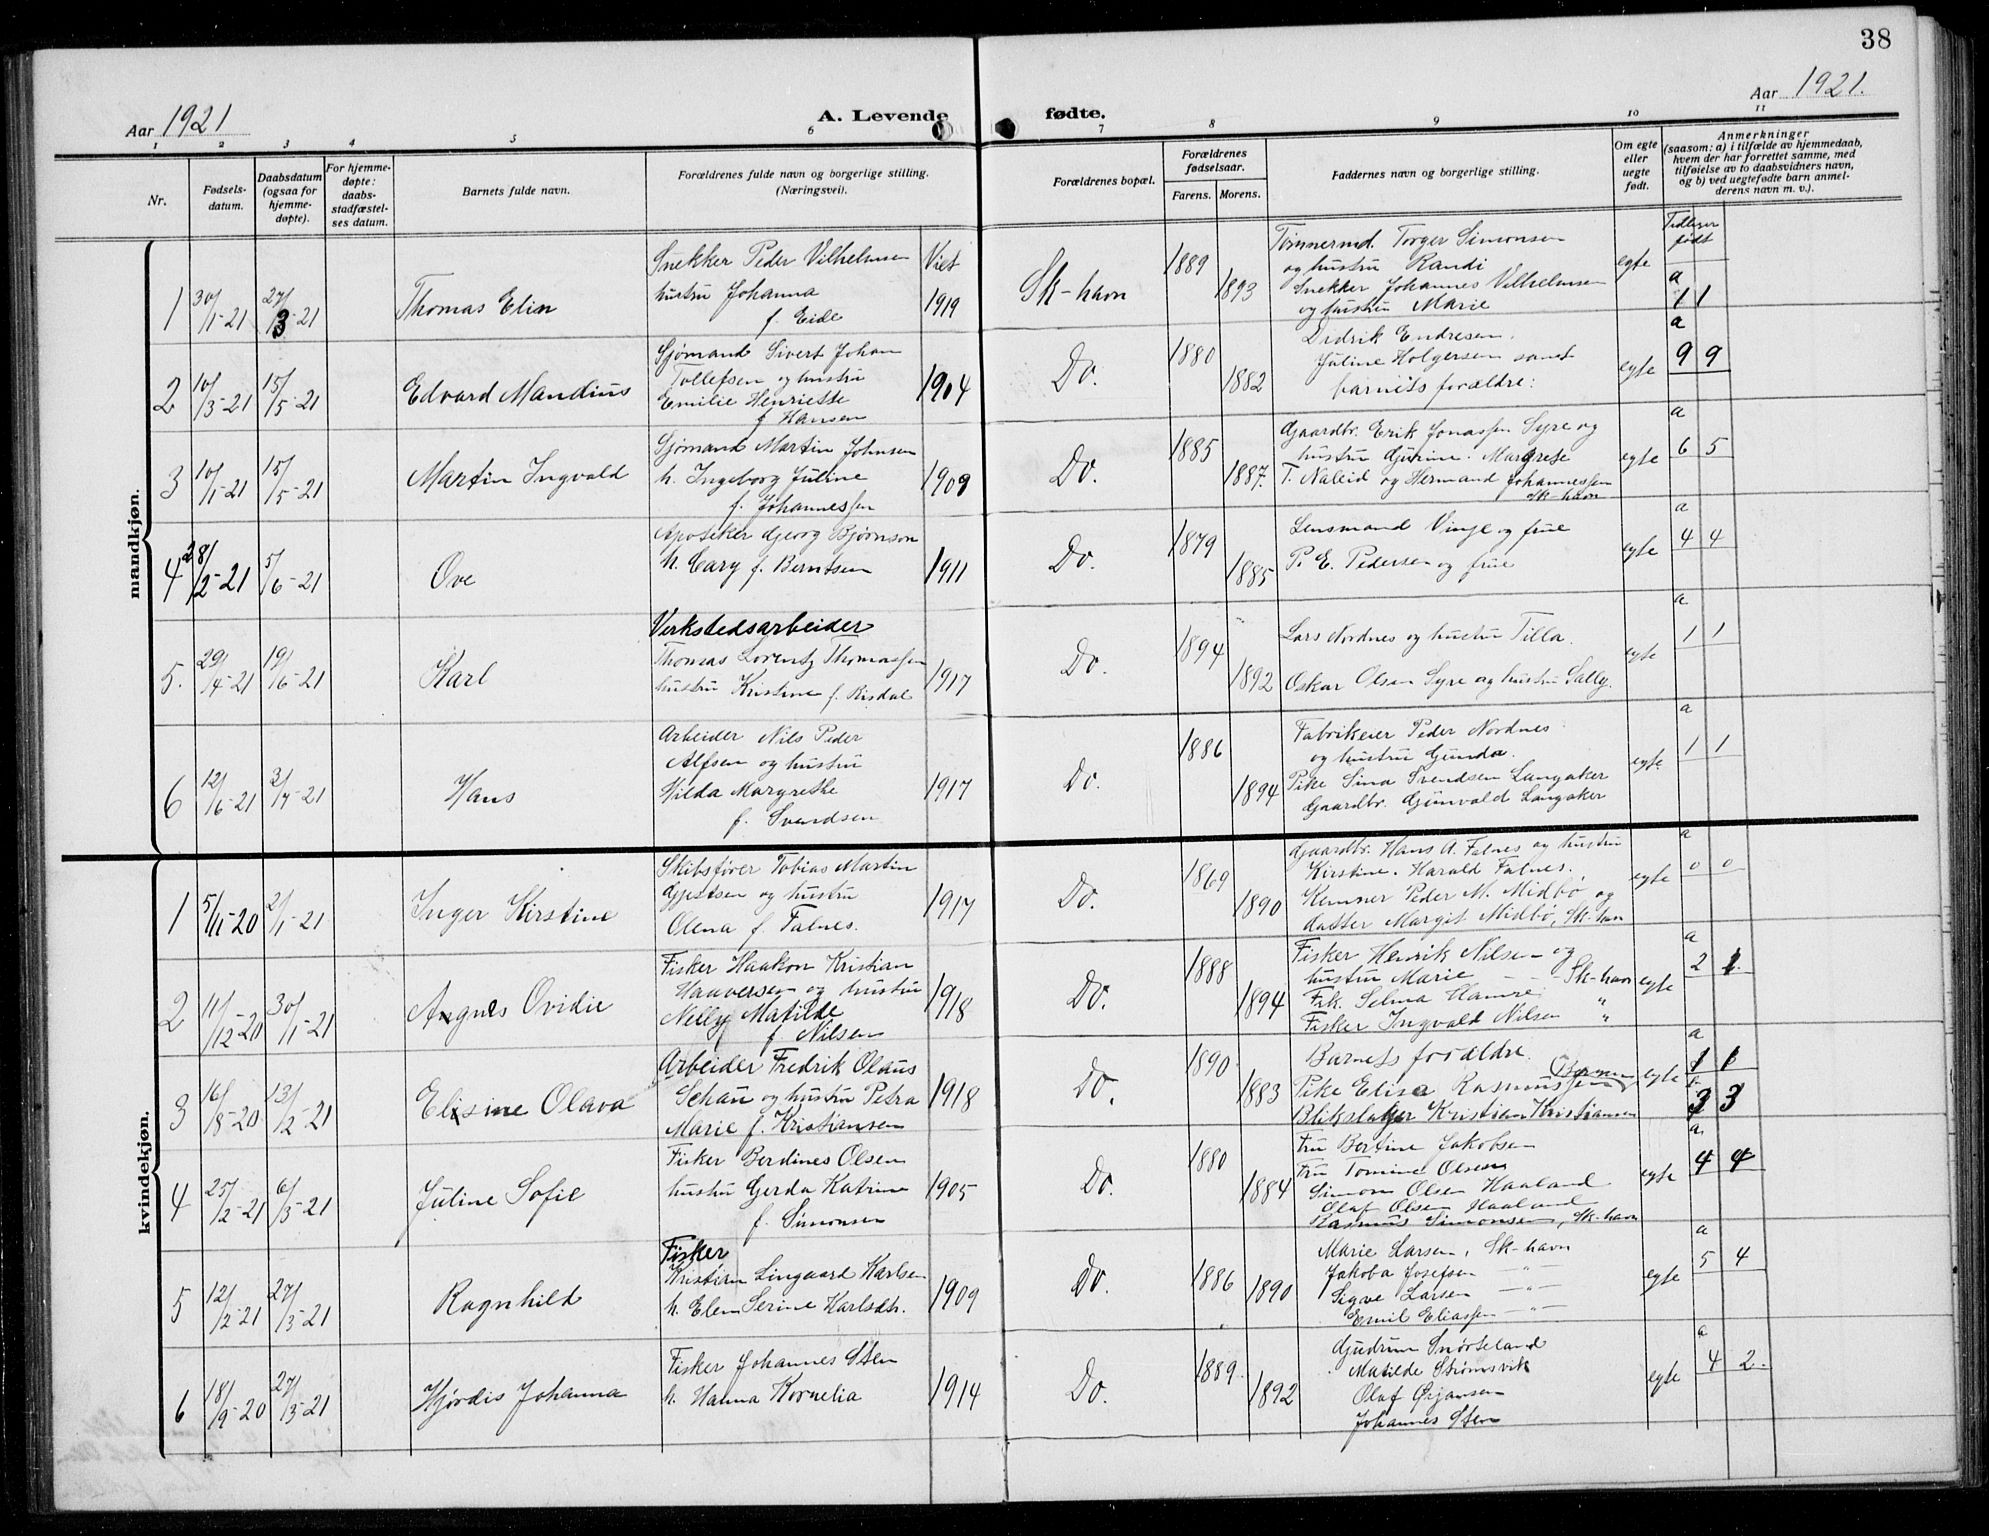 38
Aar 1921
A. Levende fødte.
Aar 1921.
1 2 3 4 5 6 7 8 9 10 11
Nr.
Fødsels-
datum.
Daabsdatum
(ogsaa for
hjemme-
døpte).
For hjemme-
døpte:
daabs-
stadfæstel-
ses datum.
Barnets fulde navn.
Forældrenes fulde navn og borgerlige stilling.
(Næringsvei).
Forældrenes bopæl.
Forældrenes
fødselsaar.
Farens. Morens.
Faddernes navn og borgerlige stilling.
Om egte
eller
uegte
født.
Anmerkninger
(saasom: a) i tilfælde av hjemmedaab,
hvem der har forrettet samme, med
tilføielse av to daabsvidners navn,
og b) ved uegtefødte barn anmel-
derens navn m. v.).
Tidligere
født
mandkjøn.
1 30/1-21 27/3-21 Thomas Elin
Snekker Peder Vilhelmsen
hustru Johanna
f. Eide
Viet
1919
Sk-havn
1889 1893
Tømmermd. Torger Simonsen
og hustru Randi
Snekker Johannes Vilhelmsen
og hustru Marie
egte
a
1 1
2 10/3-21 15/5-21 Edvard Mandius
Sjømand Sivert Johan
Tollefsen og hustru
Emilie Henriette
f Hansen
1904
Do.
1880 1882
Didrik Endresen.
Juline Holgersen samt
barnets forældre:
egte
a
9 9
3 10/1-21 15/5-21 Martin Ingvald
Sjømand Martin Johnsen
h. Ingeborg Juline
f. Johannessen
1909
Do.
1885 1887.
Gaardbr. Erik Jonassen Syre og
hustru Gurine. Margrete
T. Naleid og Hermand Johannessen
Sk-havn
egte
a
6 5
4 28/2-21 5/6-21 Ove
Apoteker Georg Bjørnson
h. Cary f. Berntsen
1911
Do.
1879 1885
Lensmand Vinje og frue
P. E. Pedersen og frue
egte
a
4 4
5. 29/4-21 19/6-21 Karl
Verkstedsarbeider
Thomas Lorentz Thomassen
hustru Kristine f. Risdal
1917
Do.
1894 1892
Lars Nordnes og hustru Tilla.
Oskar Olsen Syre og hustru Sally.
egte
a
1 1
6 12/6-21 3/7-21 Hans
Arbeider Nils Peder
Alfsen og hustru
Hilda Margrethe
f. Svendsen
1917
Do.
1886 1894
Fabrikeier Peder Nordnes
og hustru Gunda.
Pike Sina Svendsen Langaker
Gaardbr. Gunvald Langaker
egte
a
1 1
kvindekjøn.
1 5/11-20 2/1-21 Inger Kirstine
Skibsfører Tobias Martin
Gjestsen og hustru
Olena f. Falnes.
1917
Do.
1869 1890
Gaardbr. Hans A. Falnes og hustru
Kirstine. Harald Falnes.
Kemner Peder M. Midbø og
datter Margit Midbø, Sk-havn
egte
a
0 0
2 11/12-20 30/1-21 Angnes Ovidie
Fisker Haakon Kristian
Haaversen og hustru
Nelly Matilde
f Nilsen
1918
Do.
1888 1894
Fisker Henrik Nilsen og
hustru Marie - - Sk-havn
Frk. Selma Hamre "
Fisker Ingvald Nilsen "
egte
a
2 1.
3 16/8-20 13/2-21 Elisine Olava
Arbeider Fredrik Olaus
Schau og hustru Petra
Marie f. Kristiansen
1918
Do.
1890. 1883
Barnets forældre.
Pike Elise Rasmussen
Blikslager Kristian Kristiansen
egte
a
1 1
3 3
4 25/2-21 6/3-21 Juline Sofie
Fisker Berdines Olsen
hustru Gerda Katrine
f. Simonsen
1905
Do.
1880 1884
Fru Bertine Jakobsen
Fru Tomine Olsen
Simon Olsen Haaland
Olaf Olsen Haaland
Rasmus Simonsen, Sk-havn
egte
a
4 4
5 12/2-21 27/3-21 Ragnhild
Fisker
Kristian Lingaard Karlsen
h. Elen Serine Karlsdtr.
1909
Do.
1886 1890
Marie Larsen, Sk-havn
Jakoba Josefsen -"-
Sigve Larsen -"-
Emil Eliassen -"-
egte
a
5 4
6 18/9-20 27/3-21 Hjørdis Johanna
Fisker Johannes Sten
h. Hanna Kornelia
1914
Do.
1889. 1892
Gudrun Snørteland
Matilde Strømsvik
Olaf Ørjansen
Johannes Sten
egte
a
4 2.